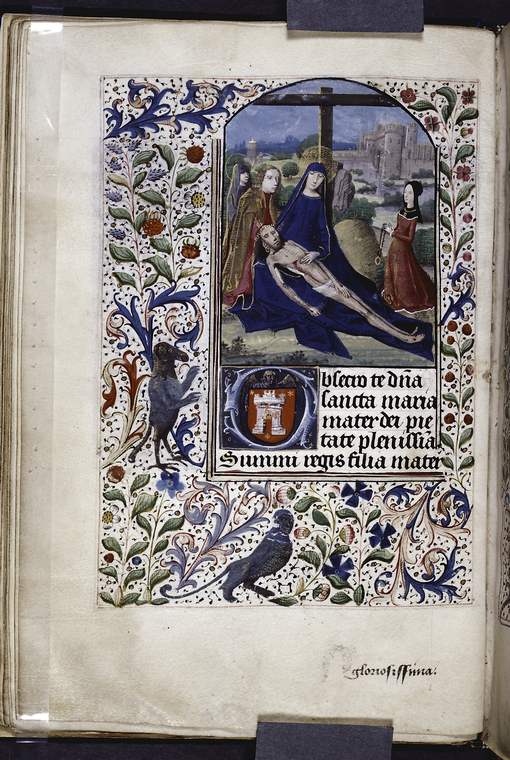 Obsecro te dña
sancta maria
mater dei pie
tate plenissia.
Summi regis filia mater
gloriosissima.